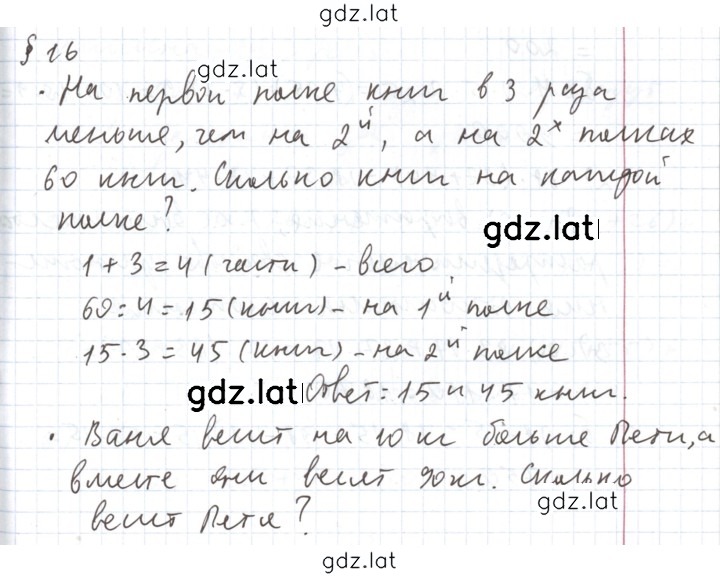 gdz.lat
§ 16
gdz.lat
· На первой полке книг в 3 раза
меньше, чем на 2й, а на 2х полках
60 книг. Сколько книг на каждой
полке?
gdz.lat
1 + 3 = 4 (части) – всего
60 : 4 = 15 (книг) – на 1й полке
15 · 3 = 45 (книг) – на 2й полке
gdz.lat
Ответ: 15 и 45 книг.
· Ваня весит на 10 кг больше Пети, а
вместе они весят 90 кг. Сколько
gdz.lat
весит Петя?
gdz.lat